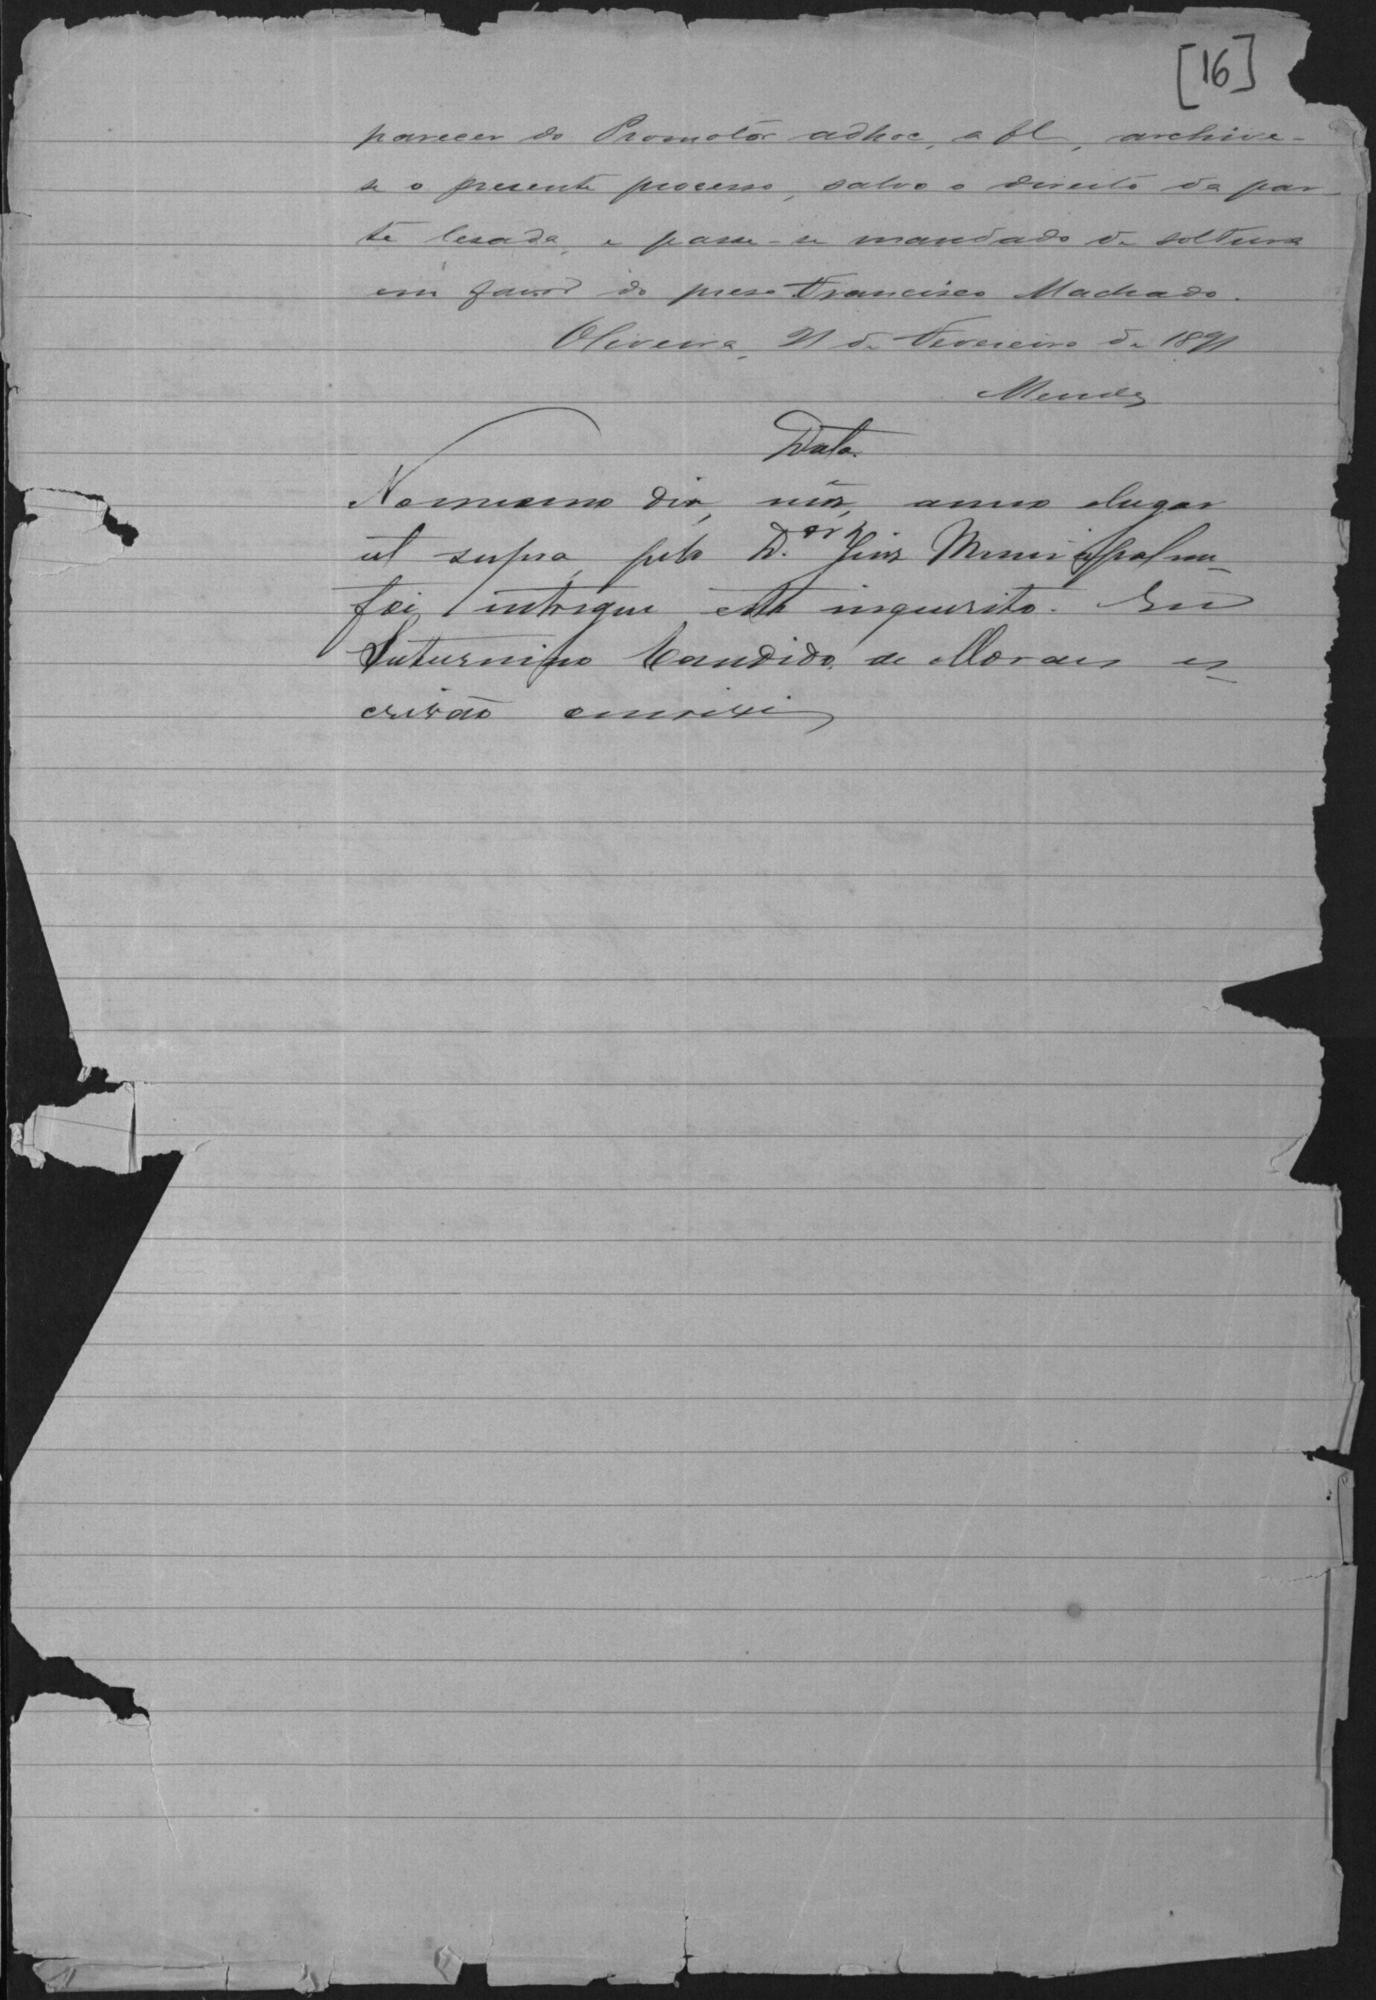 [16]
parecer do Promotôr adhoc, a fl, archive-
se o presente processo, salvo o direito da par
te lesada, e passe-se mandado de soltura
em favor do preso Francisco Machado.
Oliveira, 21 de Fevereiro de 1891
Mendes
Data.
No mesmo dia, mês, anno elugar
ut supra, pelo D.or Juiz Municipal me
foi intregue este inquerito. Eu
Saturnino Candido de Moraes es
crivão escrevi